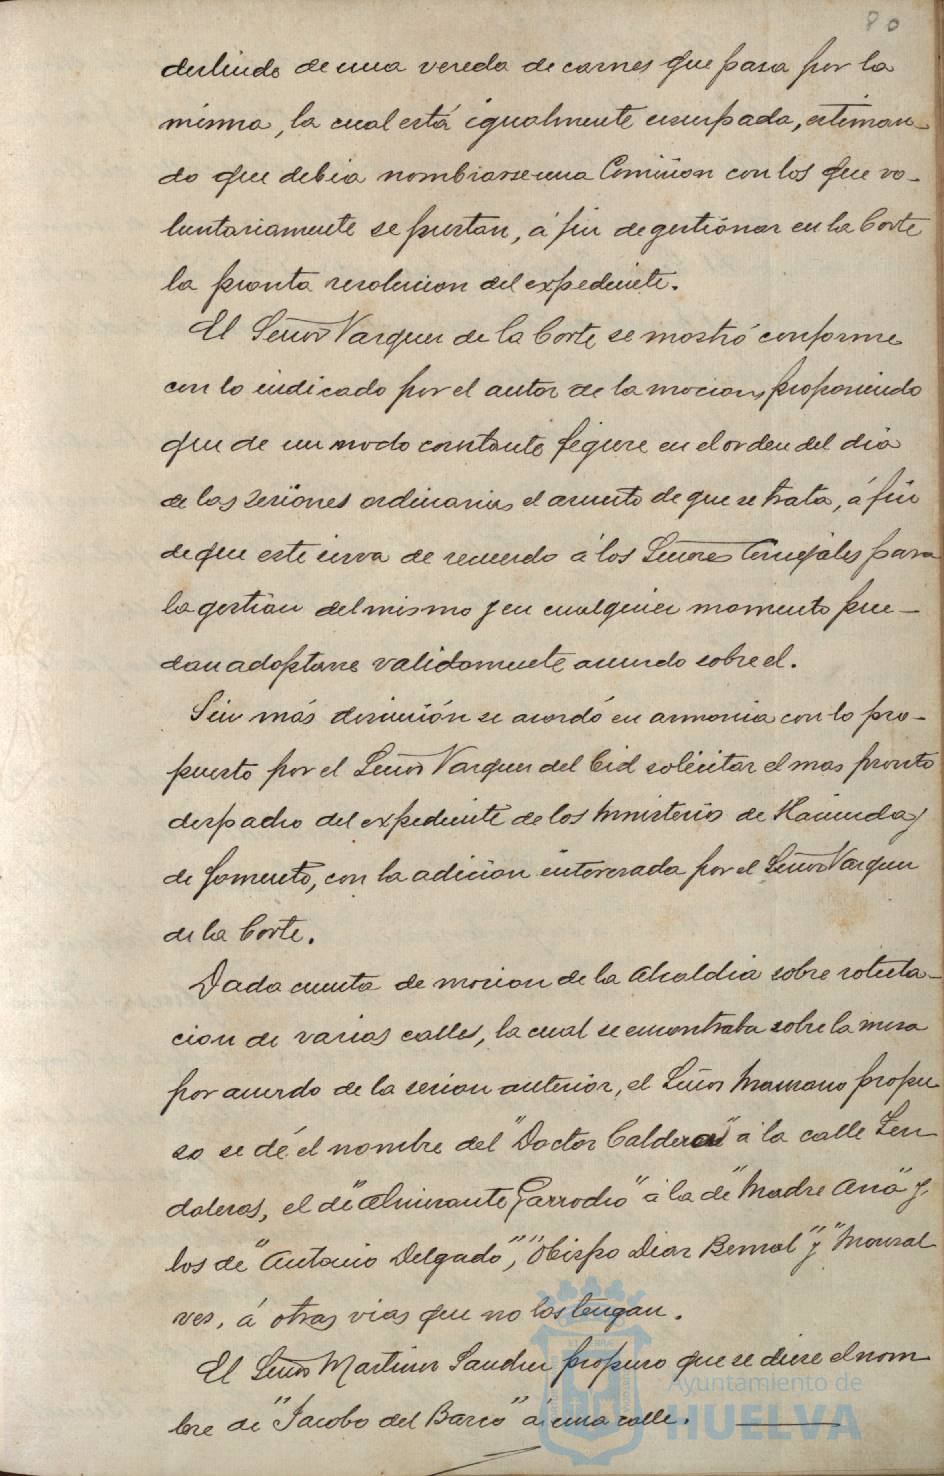 80
deslinde de una vereda de carnes que pasa por la
misma, la cual está igualmente usurpada, estiman-
do que debia nombrarse una Comision con los que vo-
luntariamente se prestan, á fin de gestionar en la Corte
la pronta resolucion del expediente.
El Señor Vazquez de la Corte se mostró conforme
con lo indicado por el autor de la mocion, proponiendo
que de un modo constante figure en el orden del dia
de las sesiones ordinarias el asunto de que se trata, á fin
de que este sirva de recuerdo á los Señores Concejales para
la gestion del mismo y en cualquier momento pue-
dan adoptarse validamente acuerdo sobre el.
Sin más discusión se acordó en armonia con lo pro-
puesto por el Señor Vazquez del Cid solicitar el mas pronto
despacho del expediente de los Ministerios de Hacienda y
de Fomento, con la adicion interesada por el Señor Vazquez
de la Corte.
Dada cuenta de mocion de la Alcaldia sobre rotula-
cion de varias calles, la cual se encontraba sobre la mesa
por acuerdo de la sesion anterior, el Señor Manzano propu
so se dé el nombre del "Doctor Caldera" á la calle Sen
daleras, el de "Almirante Garrocho" á la de "Madre Ana" y
los de "Antonio Delgado", "Obispo Diaz Bernal" y "Monsal
ves, á otras vias que no los tengan.
El Señor Martinez Sanchez propuso que se diese el nom
bre de "Jacobo del Barco" á una calle.
Ayuntamiento de
HUELVA